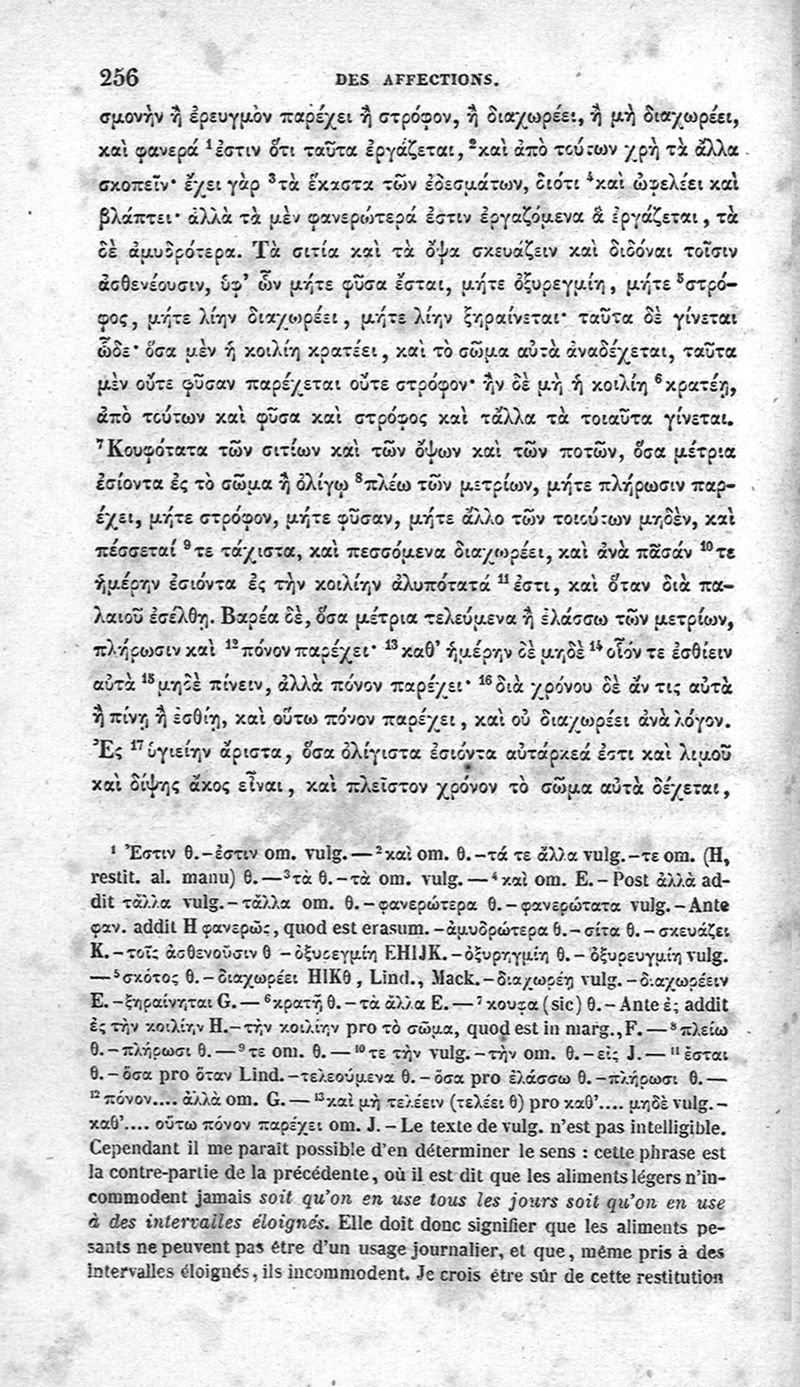 256 DES AFFECTIONS.
σμονὴν ἢ ἐρευγμὸν παρέχει ἢ στρόφον, ἢ διαχωρέει, ἢ μὴ διαχωρέει,
καὶ φανερά ¹ἐστιν ὅτι ταῦτα ἐργάζεται, ²καὶ ἀπὸ τούτων χρὴ τὰ ἄλλα
σκοπεῖν· ἔχει γὰρ ³τὰ ἕκαστα τῶν ἐδεσμάτων, διότι ⁴καὶ ὠφελέει καὶ
βλάπτει· ἀλλὰ τὰ μὲν φανερώτερά ἐστιν ἐργαζόμενα ἃ ἐργάζεται, τὰ
δὲ ἀμυδρότερα. Τὰ σιτία καὶ τὰ ὄψα σκευάζειν καὶ διδόναι τοῖσιν
ἀσθενέουσιν, ὑφ' ὧν μήτε φῦσα ἔσται, μήτε ὀξυρεγμίη, μήτε ⁵στρό-
φος, μήτε λίην διαχωρέει, μήτε λίην ξηραίνεται· ταῦτα δὲ γίνεται
ὧδε· ὅσα μὲν ἡ κοιλίη κρατέει, καὶ τὸ σῶμα αὐτὰ ἀναδέχεται, ταῦτα
μὲν οὔτε φῦσαν παρέχεται οὔτε στρόφον· ἢν δὲ μὴ ἡ κοιλίη ⁶κρατέῃ,
ἀπὸ τούτων καὶ φῦσα καὶ στρόφος καὶ τἄλλα τὰ τοιαῦτα γίνεται.
⁷Κουφότατα τῶν σιτίων καὶ τῶν ὄψων καὶ τῶν ποτῶν, ὅσα μέτρια
ἐσίοντα ἐς τὸ σῶμα ἢ ὀλίγῳ ⁸πλέω τῶν μετρίων, μήτε πλήρωσιν παρ-
έχει, μήτε στρόφον, μήτε φῦσαν, μήτε ἄλλο τῶν τοιούτων μηδὲν, καὶ
πέσσεταί ⁹τε τάχιστα, καὶ πεσσόμενα διαχωρέει, καὶ ἀνὰ πᾶσάν ¹⁰τε
ἡμέρην ἐσιόντα ἐς τὴν κοιλίην ἀλυπότατά ¹¹ἐστι, καὶ ὅταν διὰ πα-
λαιοῦ ἐσέλθῃ. Βαρέα δὲ, ὅσα μέτρια τελεύμενα ἢ ἐλάσσω τῶν μετρίων,
πλήρωσιν καὶ ¹²πόνον παρέχει· ¹³καθ' ἡμέρην δὲ μηδὲ ¹⁴οἷόν τε ἐσθίειν
αὐτὰ ¹⁵μηδὲ πίνειν, ἀλλὰ πόνον παρέχει· ¹⁶διὰ χρόνου δὲ ἄν τις αὐτὰ
ἢ πίνῃ ἢ ἐσθίῃ, καὶ οὕτω πόνον παρέχει, καὶ οὐ διαχωρέει ἀνὰ λόγον.
Ἐς ¹⁷ὑγιείην ἄριστα, ὅσα ὀλίγιστα ἐσιόντα αὐτάρκεά ἐστι καὶ λιμοῦ
καὶ δίψης ἄκος εἶναι, καὶ πλεῖστον χρόνον τὸ σῶμα αὐτὰ δέχεται,
¹ Ἔστιν θ.-ἐστιν om. vulg.—²καὶ om. θ.-τά τε ἄλλα vulg.-τε om. (H,
restit. al. manu) θ.—³τὰ θ.-τὰ om. vulg.—⁴καὶ om. E.-Post ἀλλὰ ad-
dit τἄλλα vulg.-τἄλλα om. θ.-φανερώτερα θ.-φανερώτατα vulg.-Ante
φαν. addit H φανερῶς, quod est erasum.-ἀμυδρώτερα θ.-σίτα θ.-σκευάζει
K.-τοῖς ἀσθενοῦσιν θ -ὀξυρεγμίη EHIJK.-ὀξυρηγμίη θ.-ὀξυρευγμίη vulg.
—⁵σκότος θ.-διαχωρέει HIKθ, Lind., Mack.-διαχωρέῃ vulg.-διαχωρέειν
E.-ξηραίνηται G.—⁶κρατῇ θ.-τὰ ἄλλα E.—⁷κουφα (sic) θ.-Ante ἐς addit
ἐς τὴν κοιλίην H.-τὴν κοιλίην pro τὸ σῶμα, quod est in marg., F.—⁸πλείω
θ.-πλήρωσι θ.—⁹τε om. θ.—¹⁰τε τὴν vulg.-τὴν om. θ.-εἰς J.—¹¹ἔσται
θ.-ὅσα pro ὅταν Lind.-τελεούμενα θ.-ὅσα pro ἐλάσσω θ.-πλήρωσι θ.—
¹²πόνον.... ἀλλὰ om. G.—¹³καὶ μὴ τελέειν (τελέει θ) pro καθ'.... μηδὲ vulg.-
καθ'.... οὕτω πόνον παρέχει om. J.-Le texte de vulg. n'est pas intelligible.
Cependant il me paraît possible d'en déterminer le sens : cette phrase est
la contre-partie de la précédente, où il est dit que les aliments légers n'in-
commodent jamais soit qu'on en use tous les jours soit qu'on en use
à des intervalles éloignés. Elle doit donc signifier que les aliments pe-
sants ne peuvent pas être d'un usage journalier, et que, même pris à des
intervalles éloignés, ils incommodent. Je crois être sûr de cette restitution